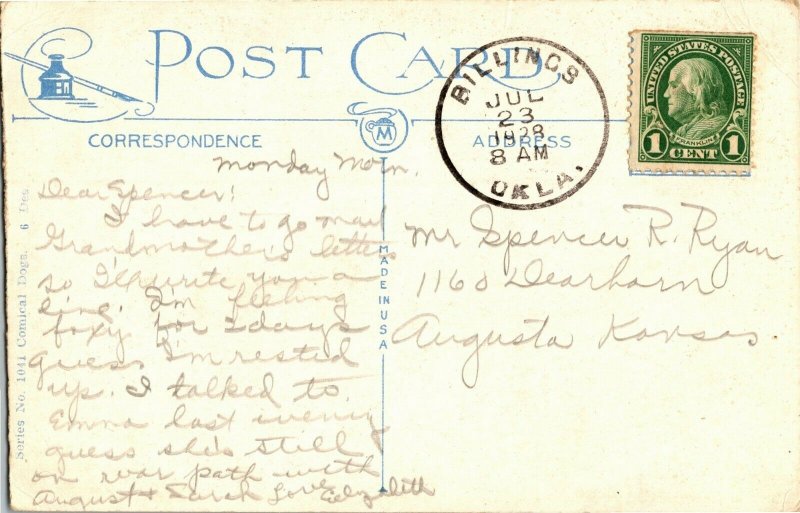 POST CARD
CORRESPONDENCE
ADDRESS
M
BILLINGS
JUL
23
1928
8 AM
OKLA.
UNITED STATES POSTAGE
FRANKLIN
1 CENT 1
Monday Morn.
Dear Spencer!
I have to go mail
Grandmother's letter
so I'll write you a
line. I'm feeling
foxy for 2 days
guess I'm rested
up. I talked to
Emma last evening
guess she's still
on war path with
August & Sarah Love Elizabeth
Mr Spencer R. Ryan
1160 Dearborn
Augusta Kansas
MADE IN USA
Series No. 1041 Comical Dogs. 6 Des